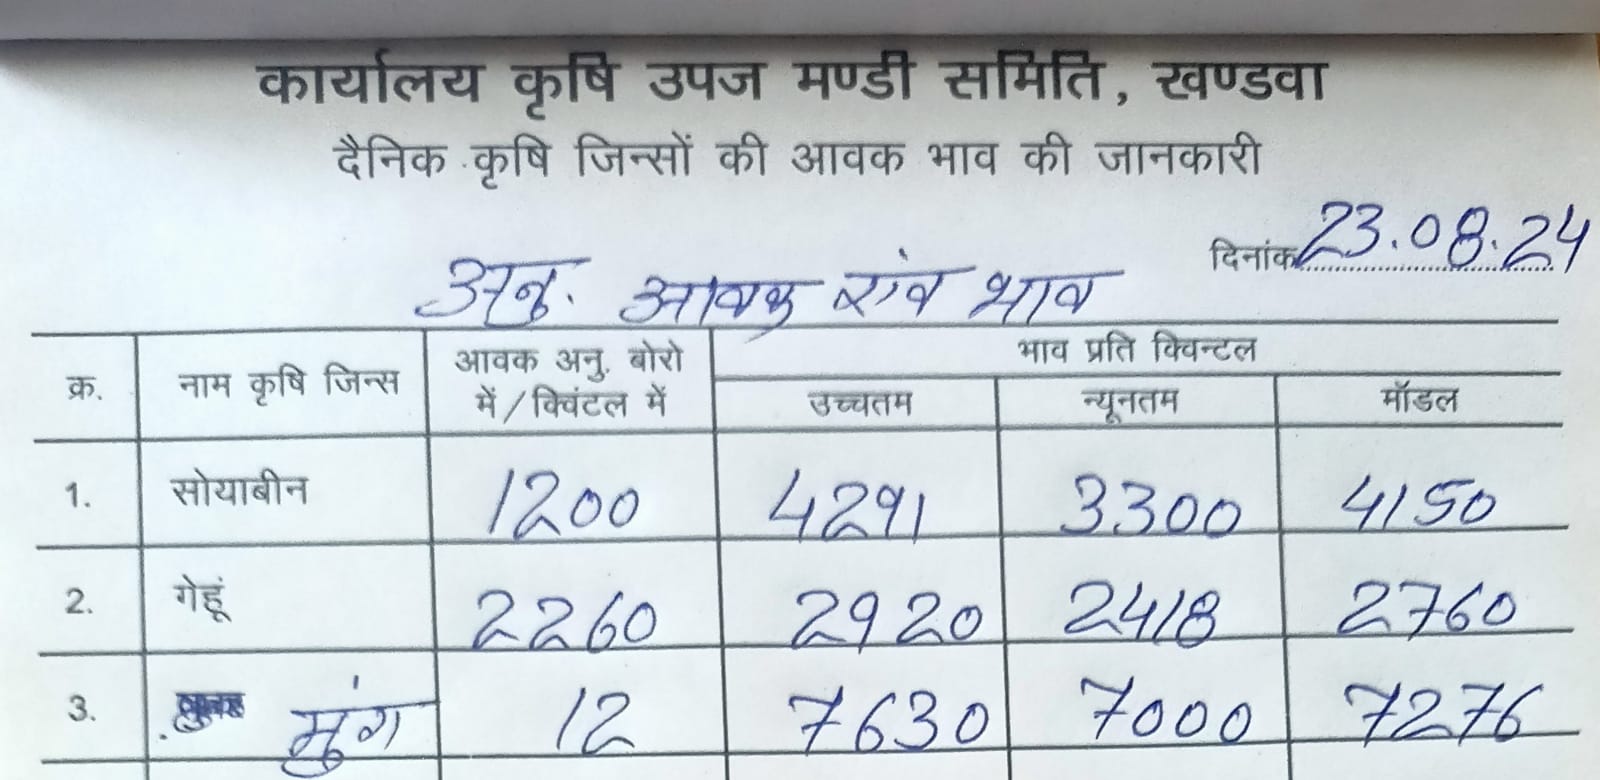 कार्यालय कृषि उपज मण्डी समिति, खण्डवा
दैनिक कृषि जिन्सों की आवक भाव की जानकारी
दिनांक 23.08.24
अनु. आवक एंव भाव
क्र. नाम कृषि जिन्स आवक अनु. बोरो में/क्विंटल में भाव प्रति क्विन्टल
उच्चतम न्यूनतम मॉडल
1. सोयाबीन 1200 4291 3300 4150
2. गेहूं 2260 2920 2418 2760
3. मुंग 12 7630 7000 7276